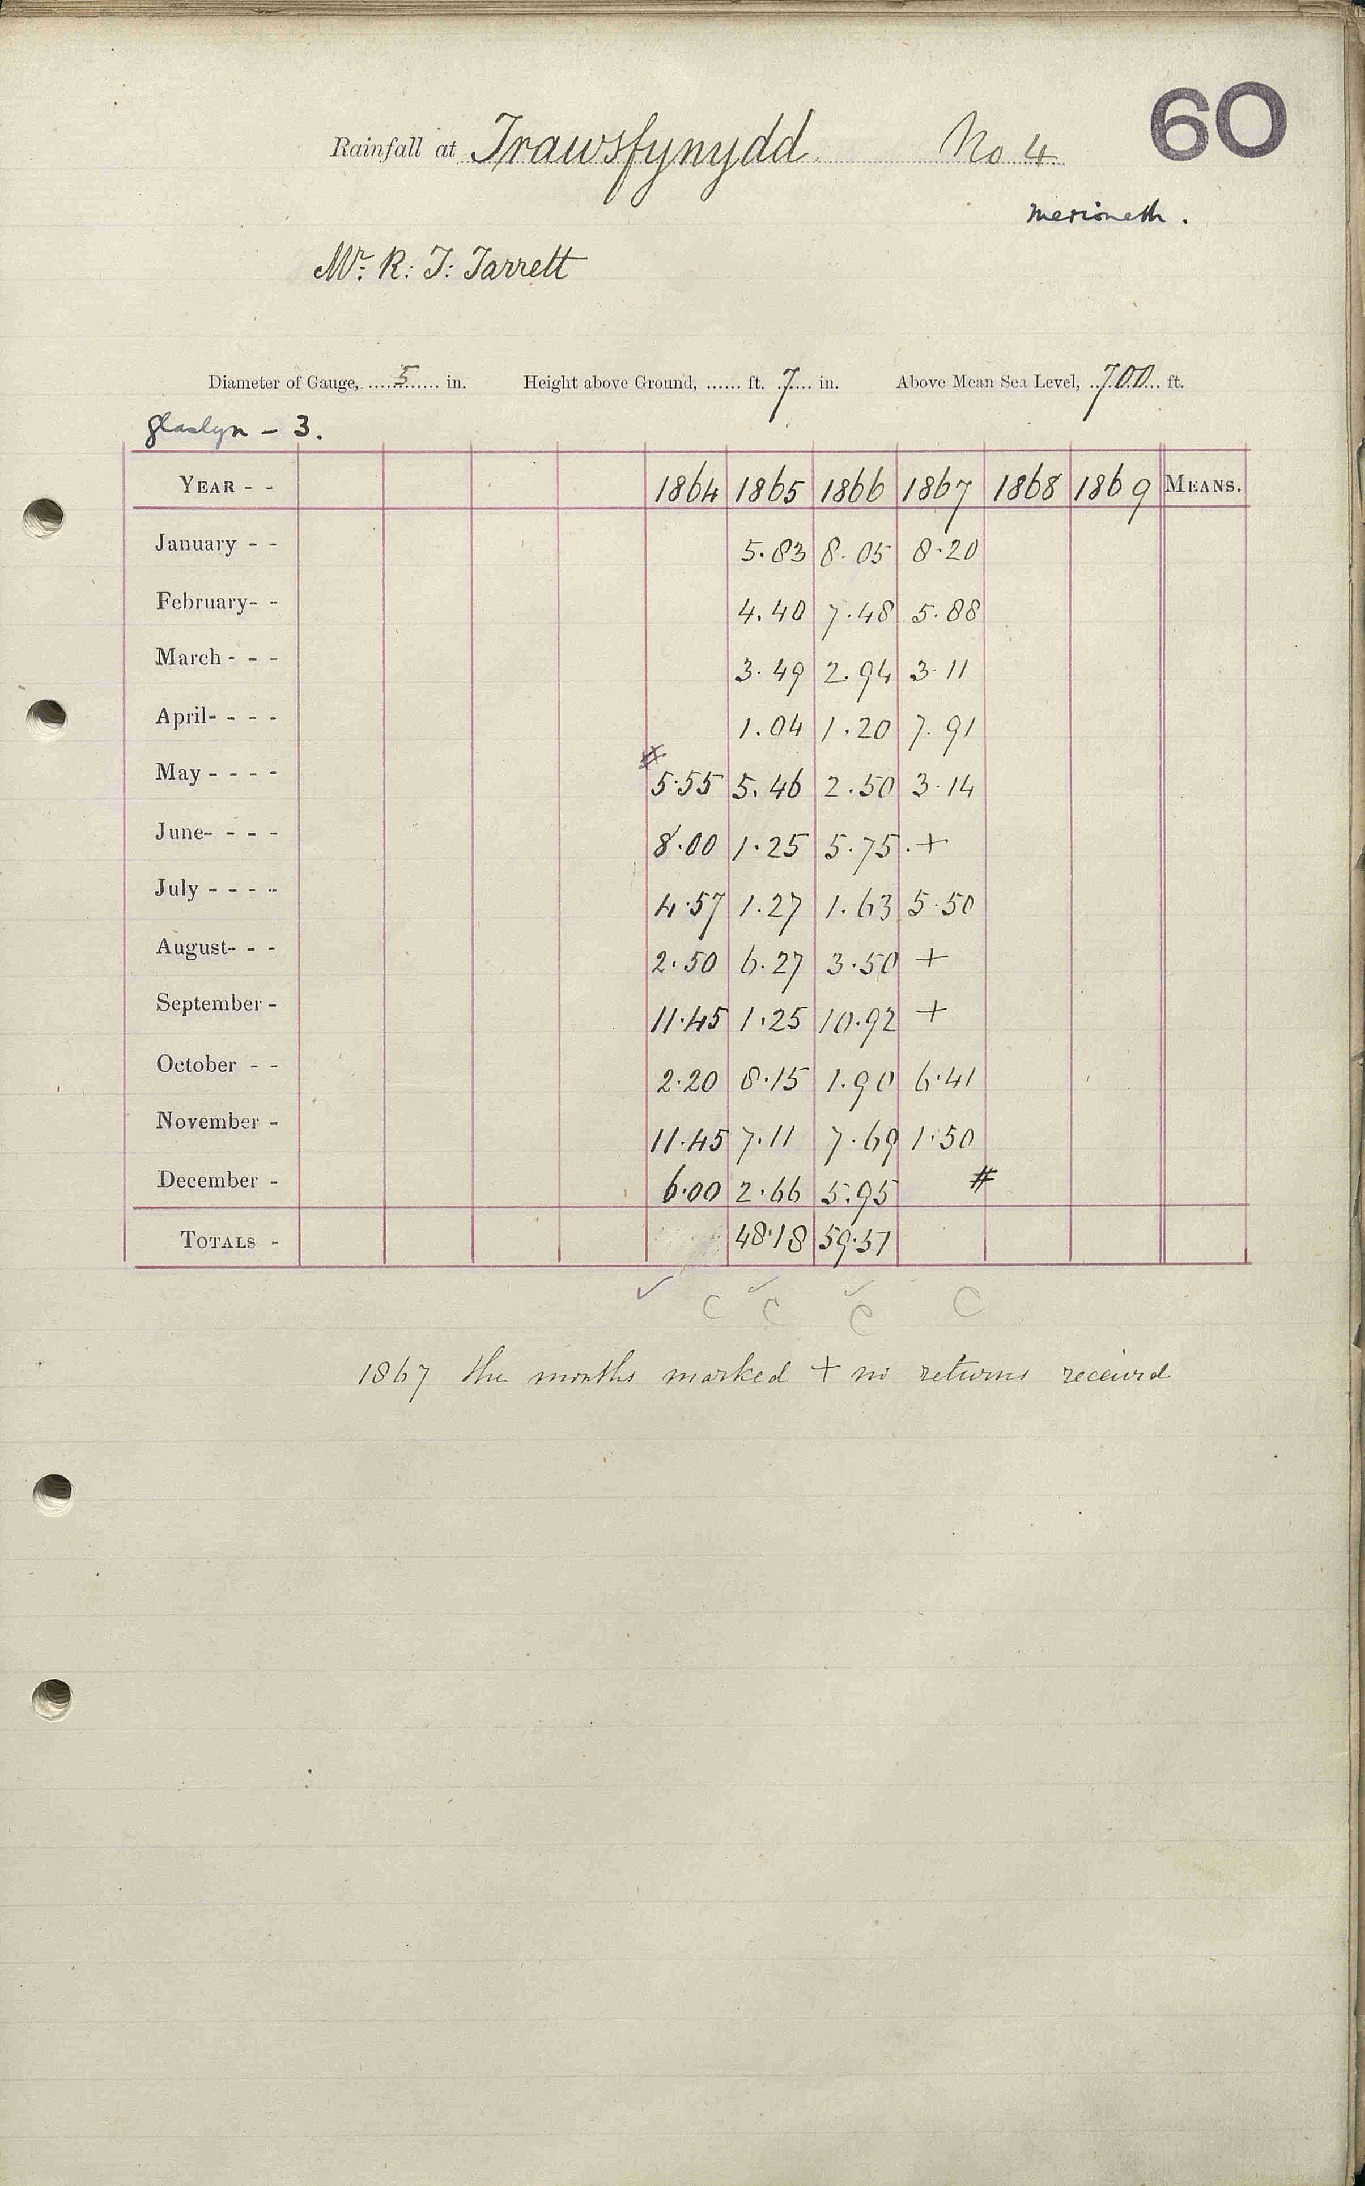 60
Rainfall at Trawsfynydd. No 4
Merioneth.
Mr: R: T: Jarrett
Diameter of Gauge, 5 in. Height above Ground, ...... ft. 7 in. Above Mean Sea Level, 700 ft.
Glaslyn - 3.
YEAR - - 1864 1865 1866 1867 1868 1869 MEANS.
January - - 5.83 8.05 8.20
February- - 4.40 7.48 5.88
March - - - 3.49 2.94 3.11
April- - - - 1.04 1.20 7.91
#
May - - - - 5.55 5.46 2.50 3.14
June- - - - 8.00 1.25 5.75 +
July - - - - 4.57 1.27 1.63 5.50
August- - - 2.50 6.27 3.50 +
September - 11.45 1.25 10.92 +
October - - 2.20 8.15 1.90 6.41
November - 11.45 7.11 7.69 1.50
December - 6.00 2.66 5.95 #
TOTALS - 48.18 59.51
✓ C ✓ C ✓ C C
1867 the months marked + no returns received